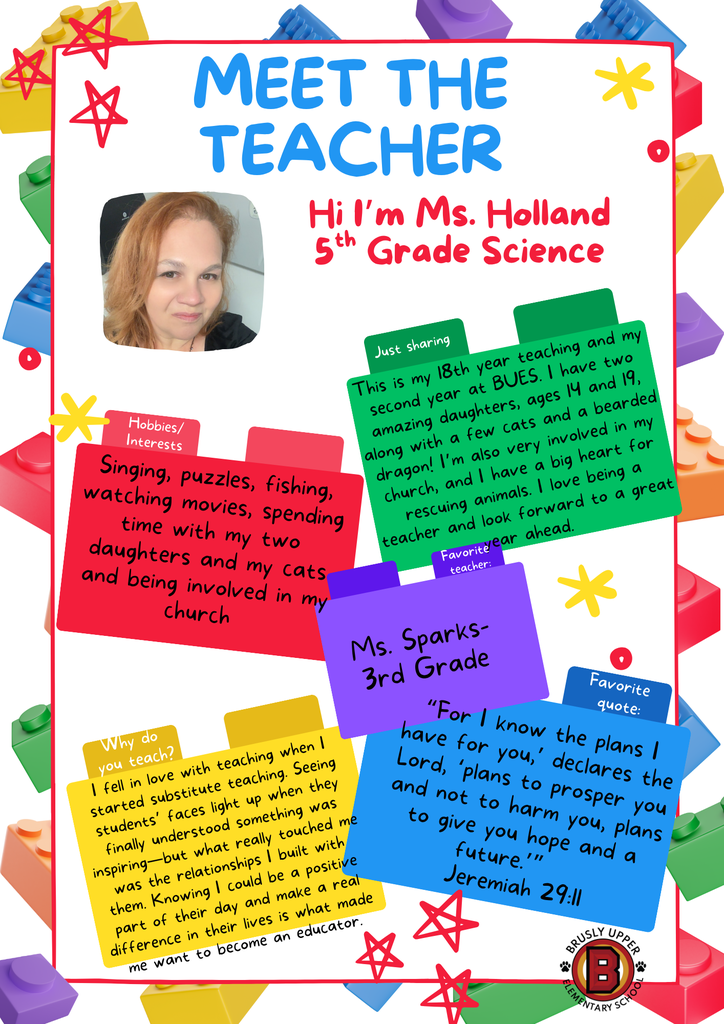 MEET THE
TEACHER
Hi I'm Ms. Holland
5th Grade Science
Just sharing
This is my 18th year teaching and my
second year at BUES. I have two
amazing daughters, ages 14 and 19,
along with a few cats and a bearded
dragon! I'm also very involved in my
church, and I have a big heart for
rescuing animals. I love being a
teacher and look forward to a great
year ahead.
Hobbies/
Interests
Singing, puzzles, fishing,
watching movies, spending
time with my two
daughters and my cats
and being involved in my
church
Favorite
teacher:
Ms. Sparks-
3rd Grade
Favorite
quote:
“For I know the plans I
have for you,’ declares the
Lord, ‘plans to prosper you
and not to harm you, plans
to give you hope and a
future.’”
Jeremiah 29:11
Why do
you teach?
I fell in love with teaching when I
started substitute teaching. Seeing
students’ faces light up when they
finally understood something was
inspiring—but what really touched me
was the relationships I built with
them. Knowing I could be a positive
part of their day and make a real
difference in their lives is what made
me want to become an educator.
BRUSLY UPPER
B
ELEMENTARY SCHOOL